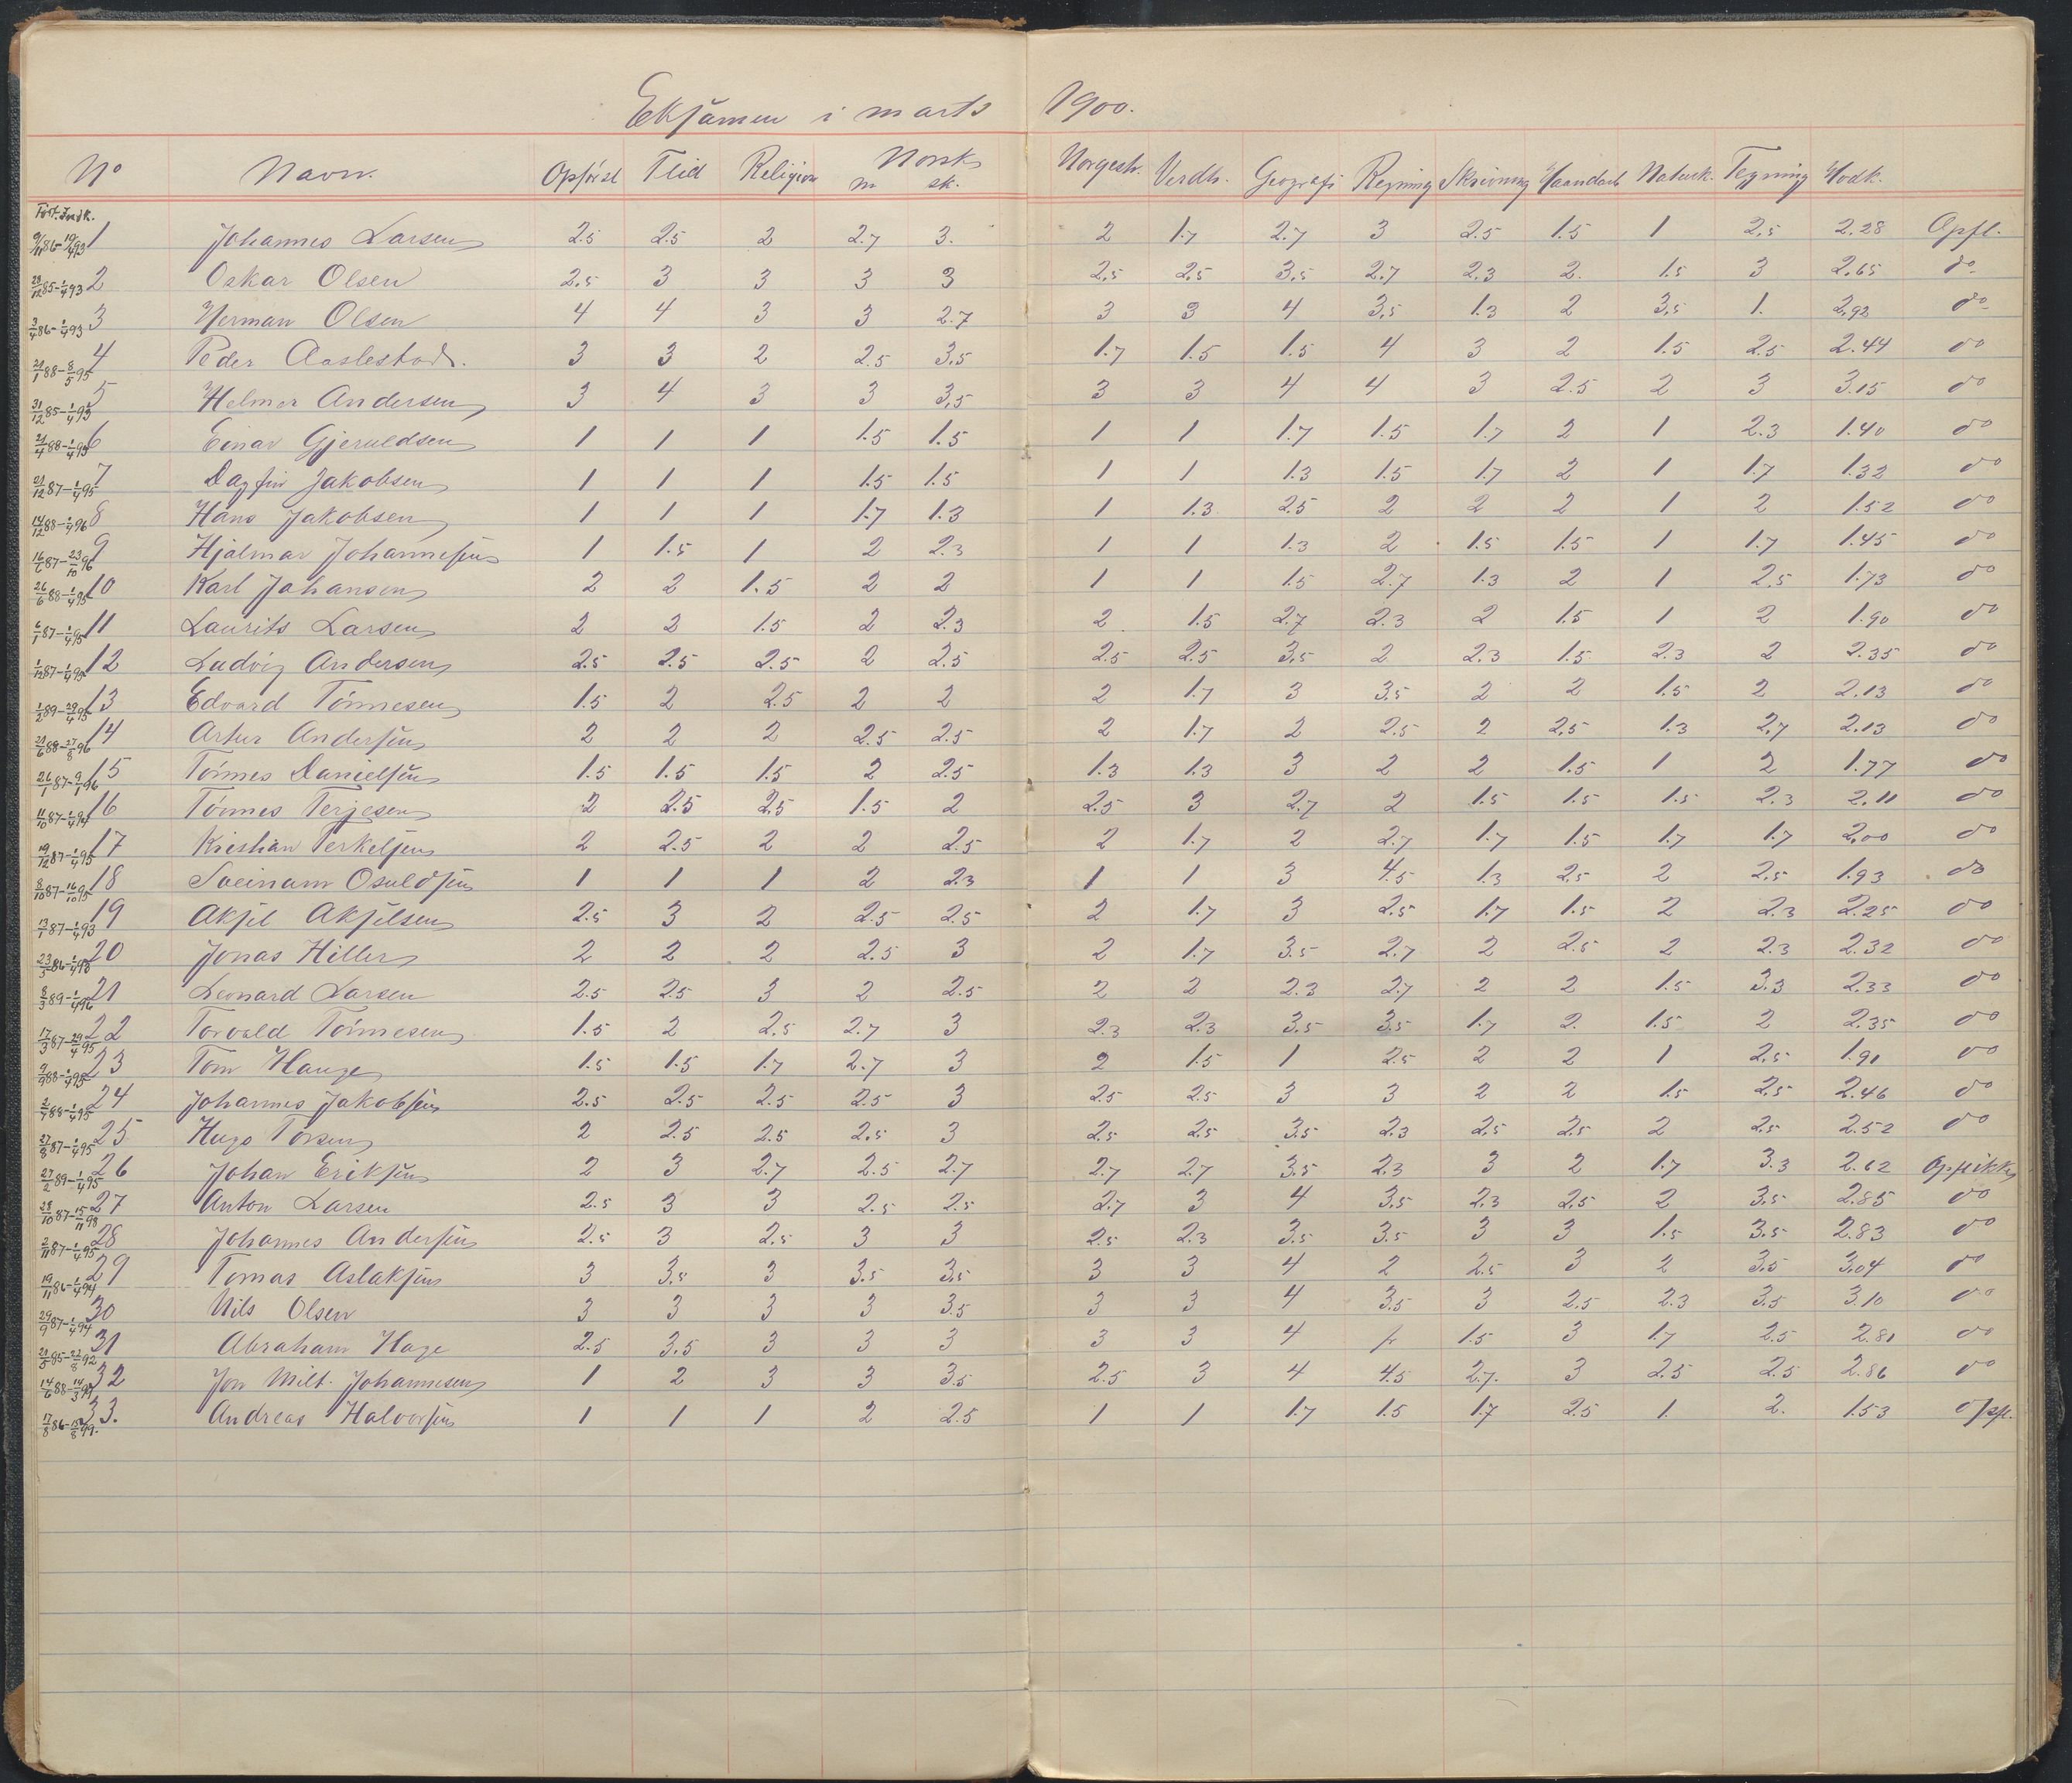 Eksamen i marts 1900.
No Navn. Opførsl Flid Religion Norsk m sk. Norgesh. Verdh. Geografi Regning Skrivning Haandarb Naturk. Tegning Hodk.
Fød. Indk.
9/11 86-19/4 93 1 Johannes Larsen 2.5 2.5 2 2.7 3. 2 1.7 2.7 3 2.5 1.5 1 2.5 2.28 Opfl.
28/12 85-1/4 93 2 Oskar Olsen 2.5 3 3 3 3 2.5 2.5 3.5 2.7 2.3 2. 1.5 3 2.65 do
3/4 86-1/4 93 3 Herman Olsen 4 4 3 3 2.7 3 3 4 3.5 1.3 2 3.5 1. 2.92 do
21/1 88-8/5 95 4 Peder Aaslestad. 3 3 2 2.5 3.5 1.7 1.5 1.5 4 3 2 1.5 2.5 2.44 do
31/12 85-1/4 93 5 Helmer Andersen 3 4 3 3 3.5 3 3 4 4 3 2.5 2 3 3.15 do
21/4 88-1/4 95 6 Einar Gjeruldsen 1 1 1 1.5 1.5 1 1 1.7 1.5 1.7 2 1 2.3 1.40 do
21/12 87-1/4 95 7 Dagfin Jakobsen 1 1 1 1.5 1.5 1 1 1.3 1.5 1.7 2 1 1.7 1.32 do
14/12 88-1/4 96 8 Hans Jakobsen 1 1 1 1.7 1.3 1 1.3 2.5 2 2 2 1 2 1.52 do
16/6 87-23/10 96 9 Hjalmar Johannesen 1 1.5 1 2 2.3 1 1 1.3 2 1.5 1.5 1 1.7 1.45 do
26/6 88-1/4 95 10 Karl Johansen 2 2 1.5 2 2 1 1 1.5 2.7 1.3 2 1 2.5 1.73 do
6/1 87-1/4 95 11 Laurits Larsen 2 2 1.5 2 2.3 2 1.5 2.7 2.3 2 1.5 1 2 1.90 do
1/12 87-1/4 95 12 Ludvig Andersen 2.5 2.5 2.5 2 2.5 2.5 2.5 3.5 2 2.3 1.5 2.3 2 2.35 do
1/2 89-29/4 95 13 Edvard Tönnesen 1.5 2 2.5 2 2 2 1.7 3 3.5 2 2 1.5 2 2.13 do
21/6 88-27/8 96 14 Artur Andersen 2 2 2 2.5 2.5 2 1.7 2 2.5 2 2.5 1.3 2.7 2.13 do
26/1 87-9/1 96 15 Tönnes Danielsen 1.5 1.5 1.5 2 2.5 1.3 1.3 3 2 2 1.5 1 2 1.77 do
11/10 87-1/4 94 16 Tönnes Terjesen 2 2.5 2.5 1.5 2 2.5 3 2.7 2 1.5 1.5 1.5 2.3 2.11 do
19/12 87-1/4 95 17 Kristian Terkelsen 2 2.5 2 2 2.5 2 1.7 2 2.7 1.7 1.5 1.7 1.7 2.00 do
8/10 87-16/10 95 18 Sveinam Osuldsen 1 1 1 2 2.3 1 1 3 4.5 1.3 2.5 2 2.5 1.93 do
13/1 87-1/4 93 19 Aksel Akselsen 2.5 3 2 2.5 2.5 2 1.7 3 2.5 1.7 1.5 2 2.3 2.25 do
23/3 86-1/4 93 20 Jonas Hiller 2 2 2 2.5 3 2 1.7 3.5 2.7 2 2.5 2 2.3 2.32 do
8/3 89-1/4 96 21 Leonard Larsen 2.5 2.5 3 2 2.5 2 2 2.3 2.7 2 2 1.5 3.3 2.33 do
17/3 87-29/4 95 22 Torvald Tönnesen 1.5 2 2.5 2.7 3 2.3 2.3 3.5 3.5 1.7 2. 1.5 2 2.35 do
9/9 88-1/4 95 23 Tom Hauge 1.5 1.5 1.7 2.7 3 2 1.5 1 2.5 2 2 1 2.5 1.91 do
2/1 88-1/4 95 24 Johannes Jakobsen 2.5 2.5 2.5 2.5 3 2.5 2.5 3 3 2 2 1.5 2.5 2.46 do
27/8 87-1/4 95 25 Hugo Torsen 2 2.5 2.5 2.5 3 2.5 2.5 3.5 2.3 2.5 2.5 2 2.5 2.52 do
27/2 89-1/4 95 26 Johan Eriksen 2 3 2.7 2.5 2.7 2.7 2.7 3.5 2.3 3 2 1.7 3.3 2.62 Opf ikke
28/10 87-15/11 98 27 Anton Larsen 2.5 3 3 2.5 2.5 2.7 3 4 3.5 2.3 2.5 2 3.5 2.85 do
2/11 87-1/4 95 28 Johannes Andersen 2.5 3 2.5 3 3 2.5 2.3 3.5 3.5 3 3 1.5 3.5 2.83 do
19/11 86-1/4 94 29 Tomas Aslaksen 3 3.5 3 3.5 3.5 3 3 4 2 2.5 3 2 3.5 3.04 do
29/9 87-1/4 94 30 Nils Olsen 3 3 3 3 3.5 3 3 4 3.5 3 2.5 2.3 3.5 3.10 do
21/5 85-22/8 92 31 Abraham Hage 2.5 3.5 3 3 3 3 3 4 fr 1.5 3 1.7 2.5 2.81 do
14/6 88-14/3 99 32 Jon Milt. Johannesen 1 2 3 3 3.5 2.5 3 4 4.5 2.7. 3 2.5 2.5 2.86 do
17/8 86-15/8 99. 33. Andreas Halvorsen 1 1 1 2 2.5 1 1 1.7 1.5 1.7 2.5 1. 2. 1.53 Opfl.